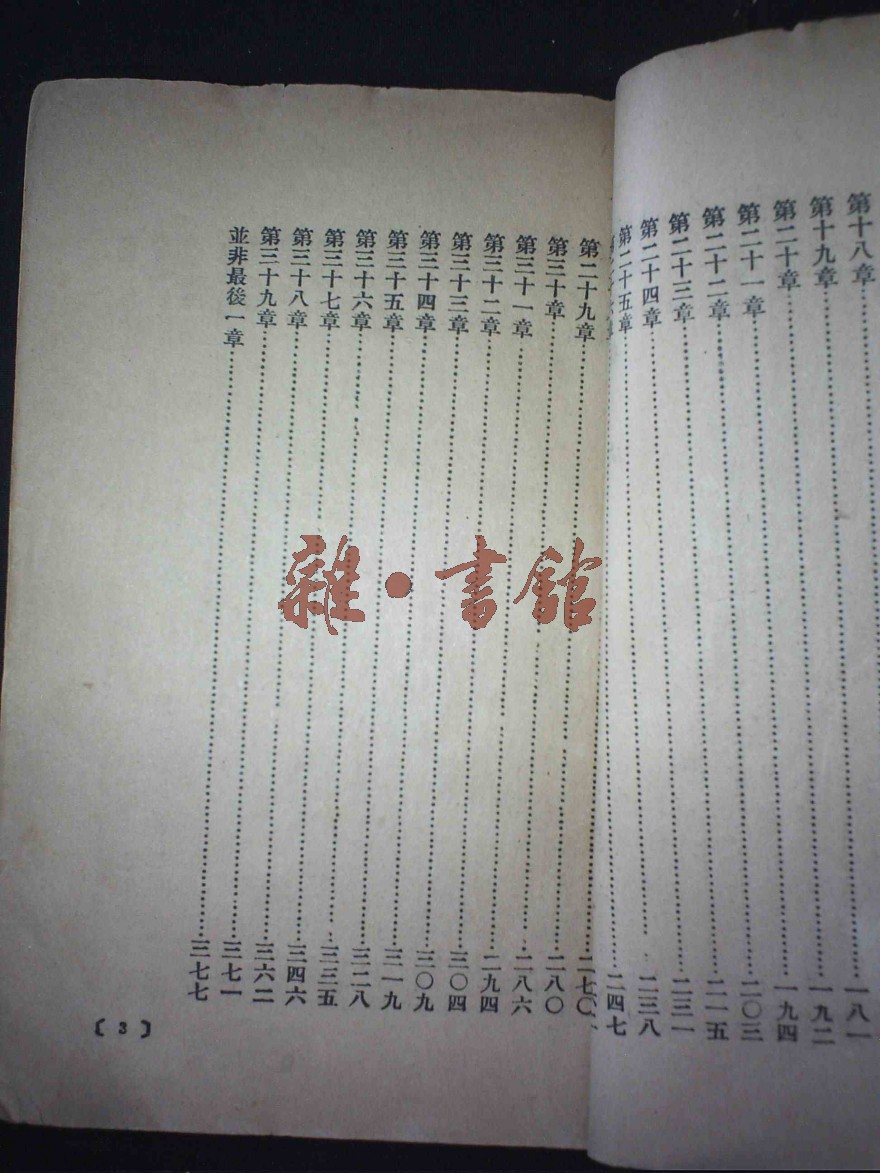 第十八章……一八一
第十九章……一九二
第二十章……一九四
第二十一章……二〇三
第二十二章……二一五
第二十三章……二三一
第二十四章……二三八
第二十五章……二四七
二七〇
第二十九章……二八〇
第三十章……二八六
第三十一章……二九四
第三十二章……三〇四
第三十三章……三〇九
第三十四章……三一九
第三十五章……三二八
第三十六章……三三五
第三十七章……三四六
第三十八章……三六二
第三十九章……三七一
並非最後一章……三七七
〔3〕
雜·書館